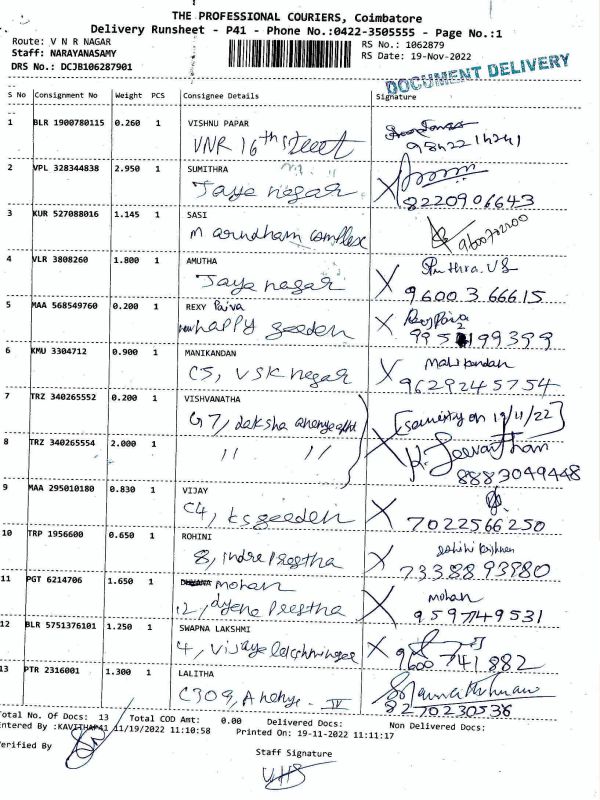 THE PROFESSIONAL COURIERS, Coimbatore
Delivery Runsheet - P41 - Phone No.:0422-3505555 - Page No.:1
Route: V N R NAGAR
Staff: NARAYANASAMY
DRS No.: DCJB106287901
RS No.: 1062879
RS Date: 19-Nov-2022
DOCUMENT DELIVERY
S No Consignment No Weight PCS Consignee Details Signature
1 BLR 1900780115 0.260 1 VISHNU PAPAR
VNR 16th street 9842214241
2 VPL 328344838 2.950 1 SUMITHRA
Jaya nagar 8220906643
3 KUR 527088016 1.145 1 SASI
m arudham complex 9600702200
4 VLR 3808260 1.800 1 AMUTHA
Jaya nagar 9600366615
5 MAA 568549760 0.200 1 REXY Paiva
new happy geeden
6 KMU 3304712 0.900 1 MANIKANDAN Manikandan
C5, VSK nagar 9629245754
7 TRZ 340265552 0.200 1 VISHVANATHA
G7, daksha [Security on 19/11/22]
8 TRZ 340265554 2.000 1
" "
8883049448
9 MAA 295010180 0.830 1 VIJAY
C4, ksgeeden 7022566250
10 TRP 1956600 0.650 1 ROHINI
8, Indra Prestha 7338893980
11 PGT 6214706 1.650 1 mohan mohan
12, Prestha 9597749531
12 BLR 5751376101 1.250 1 SWAPNA LAKSHMI
4, Vijaya lakshminagar 9600741882
13 PTR 2316001 1.300 1 LALITHA
C309, Ananya IV 8270230536
Total No. Of Docs: 13 Total COD Amt: 0.00 Delivered Docs: Non Delivered Docs:
Entered By :KAVITHAP41 11/19/2022 11:10:58 Printed On: 19-11-2022 11:11:17
Verified By
Staff Signature